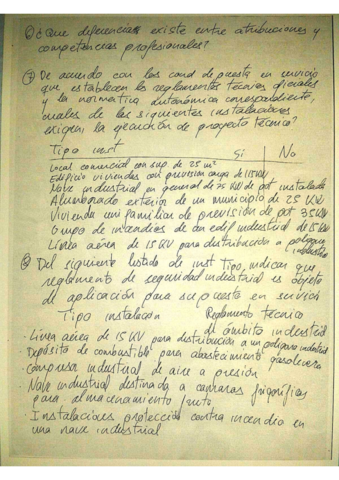 ⑥ ¿Que diferencias existe entre atribuciones y
competencias profesionales?
⑦ De acuerdo con las cond de puesta en servicio
que establecen los reglamentos técnicos oficiales
y la normativa autonómica correspondiente,
cuales de las siguientes instalaciones
exigen la ejecución de proyecto técnico?
Tipo inst Si No
Local comercial con sup de 25 m²
Edificio viviendas con prevision carga de 115 KW
Nave industrial en general de 75 KW de pot instalada
Alumbrado exterior de un municipio de 25 KW
Vivienda unifamiliar de prevision de pot 35 KW
Grupo de incendios de un edif industrial de 15 KW
Linea aérea de 15 KV para distribución a poligono
industrial
⑧ Del siguiente listado de inst Tipo, indicar que
reglamento de seguridad industrial es objeto
de aplicación para su puesta en servicio
Tipo instalación Reglamento técnico
de ámbito industrial
· Linea aérea de 15 KV para distribución a un poligono industrial
· Depósito de combustible para abastecimiento gasolinera
· Compresor industrial de aire a presión
· Nave industrial destinada a camaras frigorificas
para almacenamiento fruto
· Instalaciones protección contra incendio en
una nave industrial